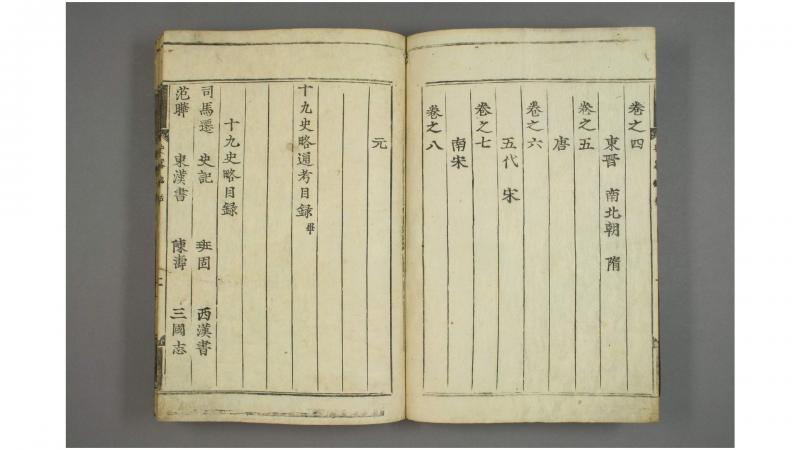 卷之四
東晉 南北朝 隋
卷之五
唐
卷之六
五代 宋
卷之七
南宋
卷之八
元
十九史略通考目錄畢
十九史略目録
司馬遷 史記 班固 西漢書
范曄 東漢書 陳壽 三國志